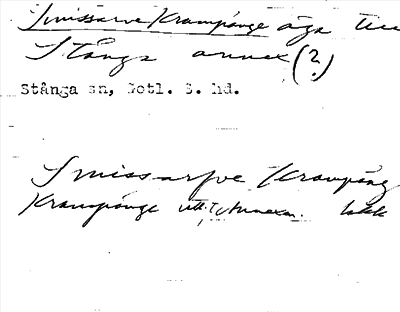 Smissarve Krampänge äga till
Stånga annex (?)
Stånga sn, Gotl. S. hd.
Smissarfve Krampäng
Krampänge utt.